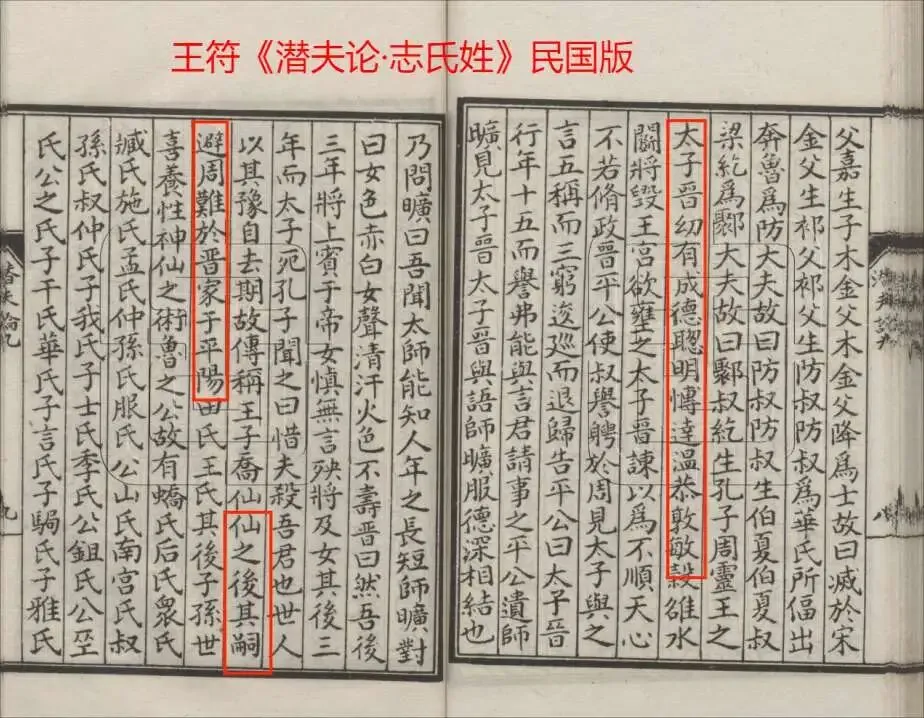 王符《潜夫论·志氏姓》民国版
父嘉生子木金父木金父降為士故曰滅於宋
金父生祁父祁父生防叔防叔為華氏所偪出
奔魯為防大夫故曰防叔防叔生伯夏伯夏叔
梁紇為鄹大夫故曰鄹叔紇生孔子周靈王之
太子晉幼有成德聰明博達溫恭敦敏穀雒水
鬭將毀王宮欲壅之太子晉諫以為不順天心
不若脩政晉平公使叔譽聘於周見太子與之
言五稱而三窮逡巡而退歸告平公曰太子晉
行年十五而譽弗能與言君請事之平公遣師
曠見太子晉太子晉與語師曠服德深相結也
乃問曠曰吾聞太師能知人年之長短師曠對
曰女色赤白女聲清汗火色不壽晉曰然吾後
三年將上賓于帝女慎無言殃將及女其後三
年而太子死孔子聞之曰惜夫殺吾君也世人
以其豫自去期故傳稱王子喬仙仙之後其嗣
避周難於晉家于平陽因氏王氏其後子孫世
喜養性神仙之術魯之公故有蟜氏后氏眾氏
臧氏施氏孟氏仲孫氏服氏公山氏南宮氏叔
孫氏叔仲氏子我氏子士氏季氏公鉏氏公巫
氏公之氏子干氏華氏子言氏子駒氏子雅氏